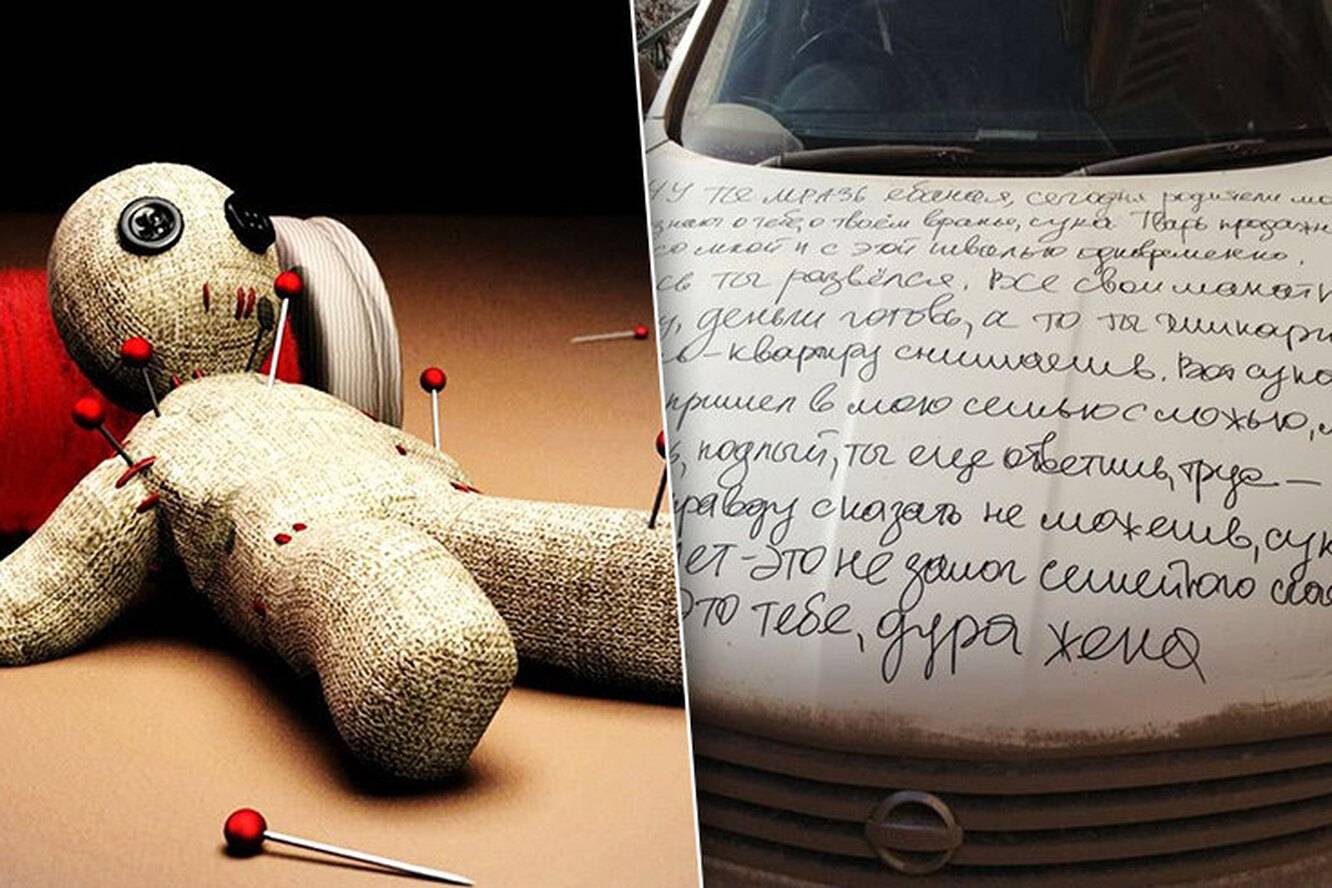 ты мразь ебаная, сегодня родители мо
знают о тебе, о твоём вранье, сука. Тварь продажн
со мной и с этой швалью одновременно,
сь ты развёлся. Все свои манатк
у, деньги готовь, а то ты шикарн
ь - квартиру снимаешь. Вот сука
пришел в мою семью с ложью,
ь, подлый, ты еще ответишь, трус -
правду сказать не можешь, сук
ет - это не залог семейного
это тебе, дура жена